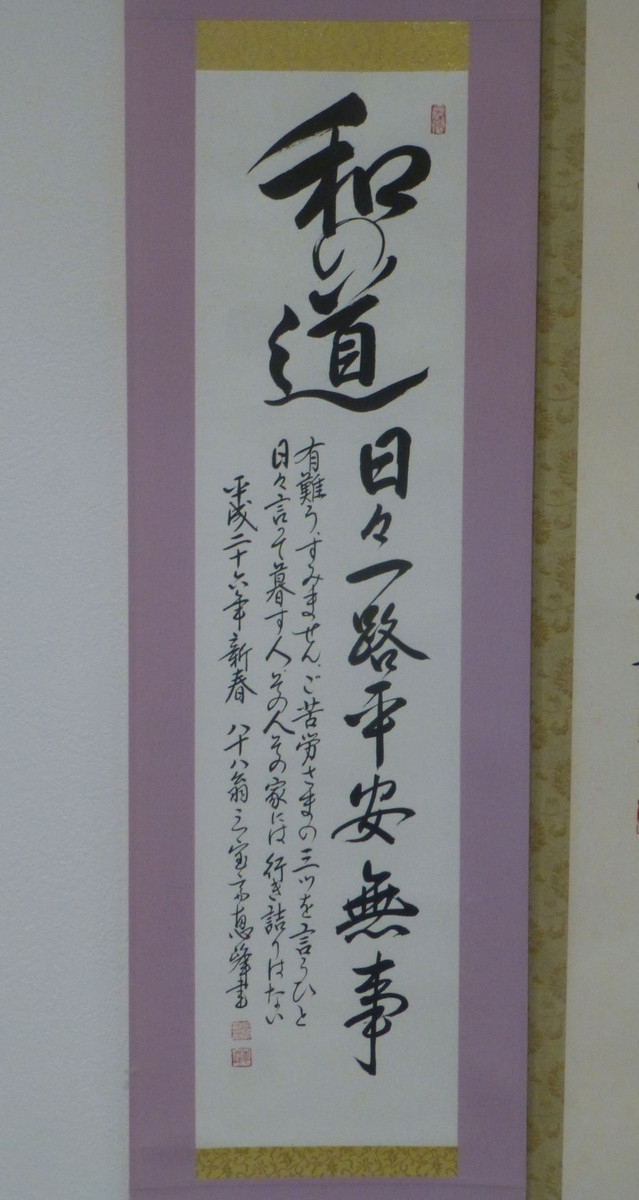 和の道
日々一路平安無事
有難う、すみません、ご苦労さまの三ツを言うひと
日々言って暮す人、その人その家には行き詰りはない
平成二十六年新春 八十八翁 三宝斎恵峰書